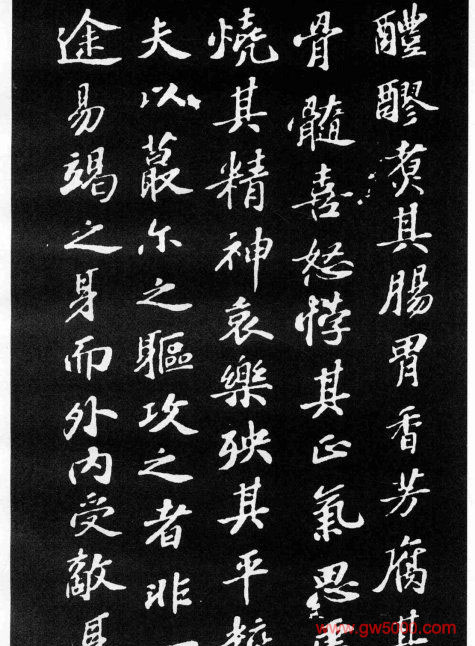 醴醪煑其腸胃香芳腐其
骨髓喜怒悖其正氣思慮
燒其精神哀樂殃其平粹
夫以蕞尔之驅攻之者非一
途易竭之身而外内受敵身
www.gw5000.com